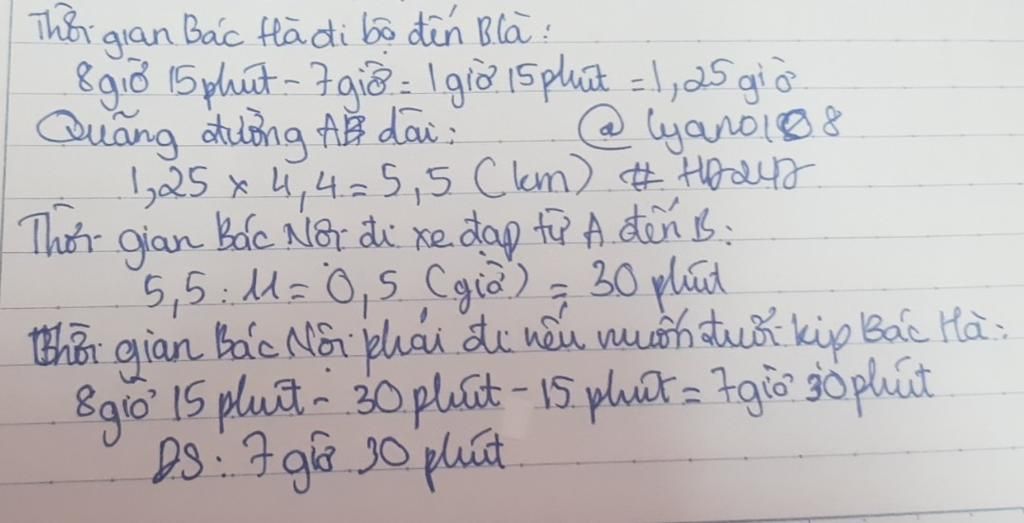 Thời gian Bác Hà đi bộ đến B là:
8 giờ 15 phút - 7 giờ = 1 giờ 15 phút = 1,25 giờ
Quãng đường AB dài: @ lyano108
1,25 x 4,4 = 5,5 (km) # HD247
Thời gian Bác Nội đi xe đạp từ A đến B:
5,5 : 11 = 0,5 (giờ) = 30 phút
Thời gian Bác Nội phải đi nếu muốn đuổi kịp Bác Hà:
8 giờ 15 phút - 30 phút - 15 phút = 7 giờ 30 phút
ĐS: 7 giờ 30 phút